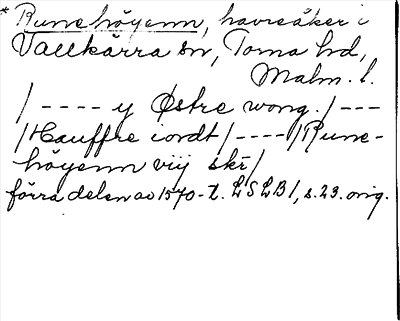 * Runehöyenn, havreåker i
Vallkärra sn, Torna hd,
Malm. l.
/ - - - - y Østre wong. / - - -
/ Hauffre iordt / - - - - / Rune-
höyenn viij skr̄ /
förra delen av 1570-t. LSLB 1, s. 23. orig.